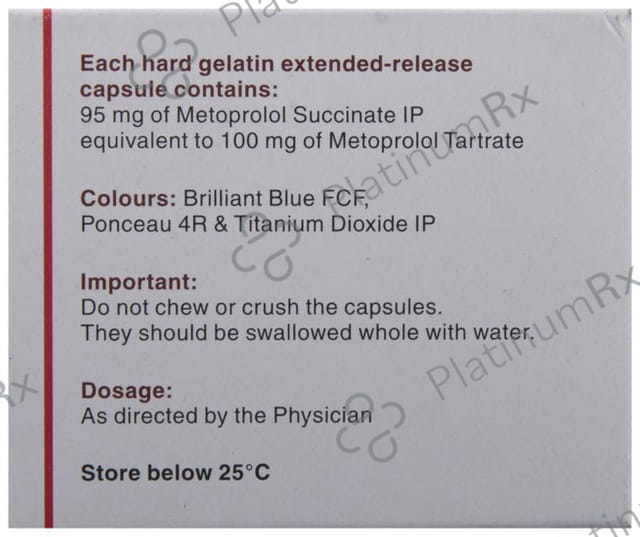 Each hard gelatin extended-release
capsule contains:
95 mg of Metoprolol Succinate IP
equivalent to 100 mg of Metoprolol Tartrate
Colours: Brilliant Blue FCF,
Ponceau 4R & Titanium Dioxide IP
Important:
Do not chew or crush the capsules.
They should be swallowed whole with water.
Dosage:
As directed by the Physician
Store below 25°C
PlatinumRx
PlatinumRx